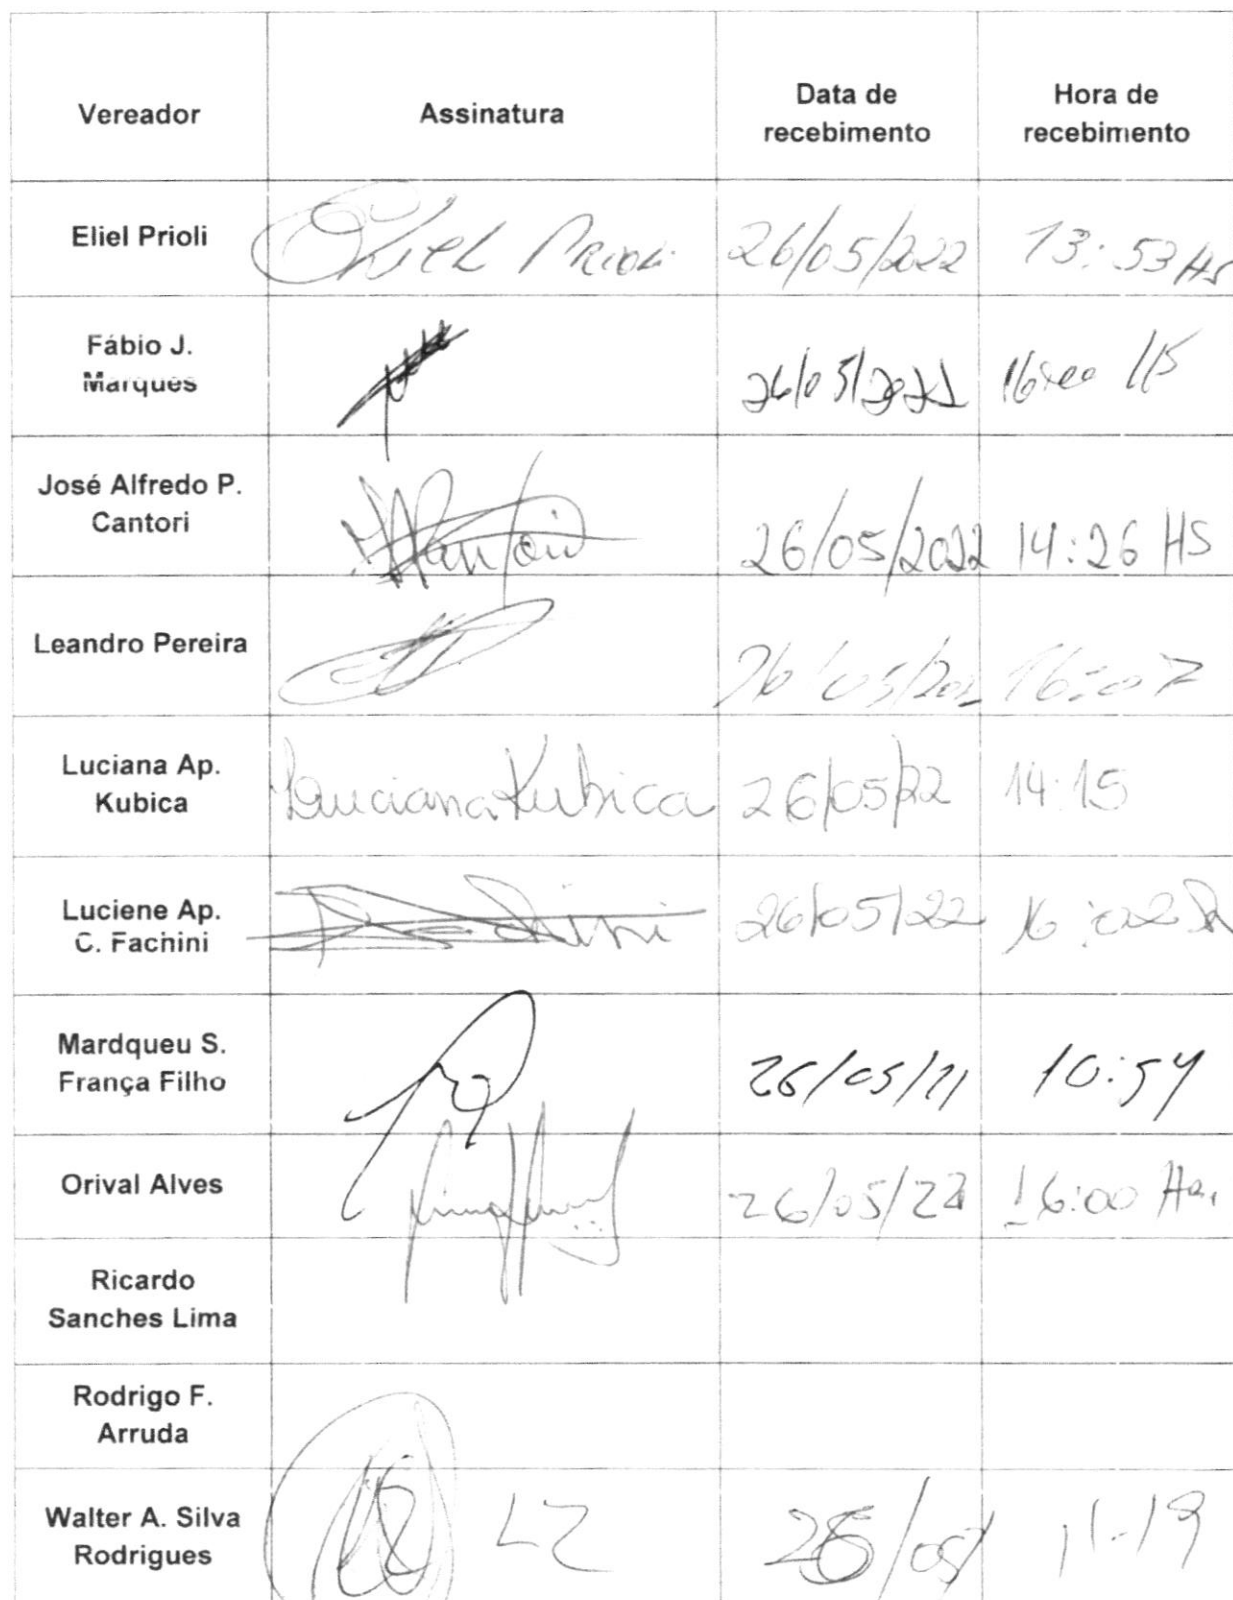 Vereador Assinatura Data de recebimento Hora de recebimento
Eliel Prioli Eliel Prioli 26/05/2022 13:53 Hs
Fábio J. Marques 26/05/2022 16:00 HS
José Alfredo P. Cantori 26/05/2022 14:26 HS
Leandro Pereira 26/05/202 16:07
Luciana Ap. Kubica Luciana Kubica 26/05/22 14:15
Luciene Ap. C. Fachini 26/05/22 16:02
Mardqueu S. França Filho 26/05/ 10:54
Orival Alves 26/05/22 16:00
Ricardo Sanches Lima
Rodrigo F. Arruda
Walter A. Silva Rodrigues /05/ 11-19